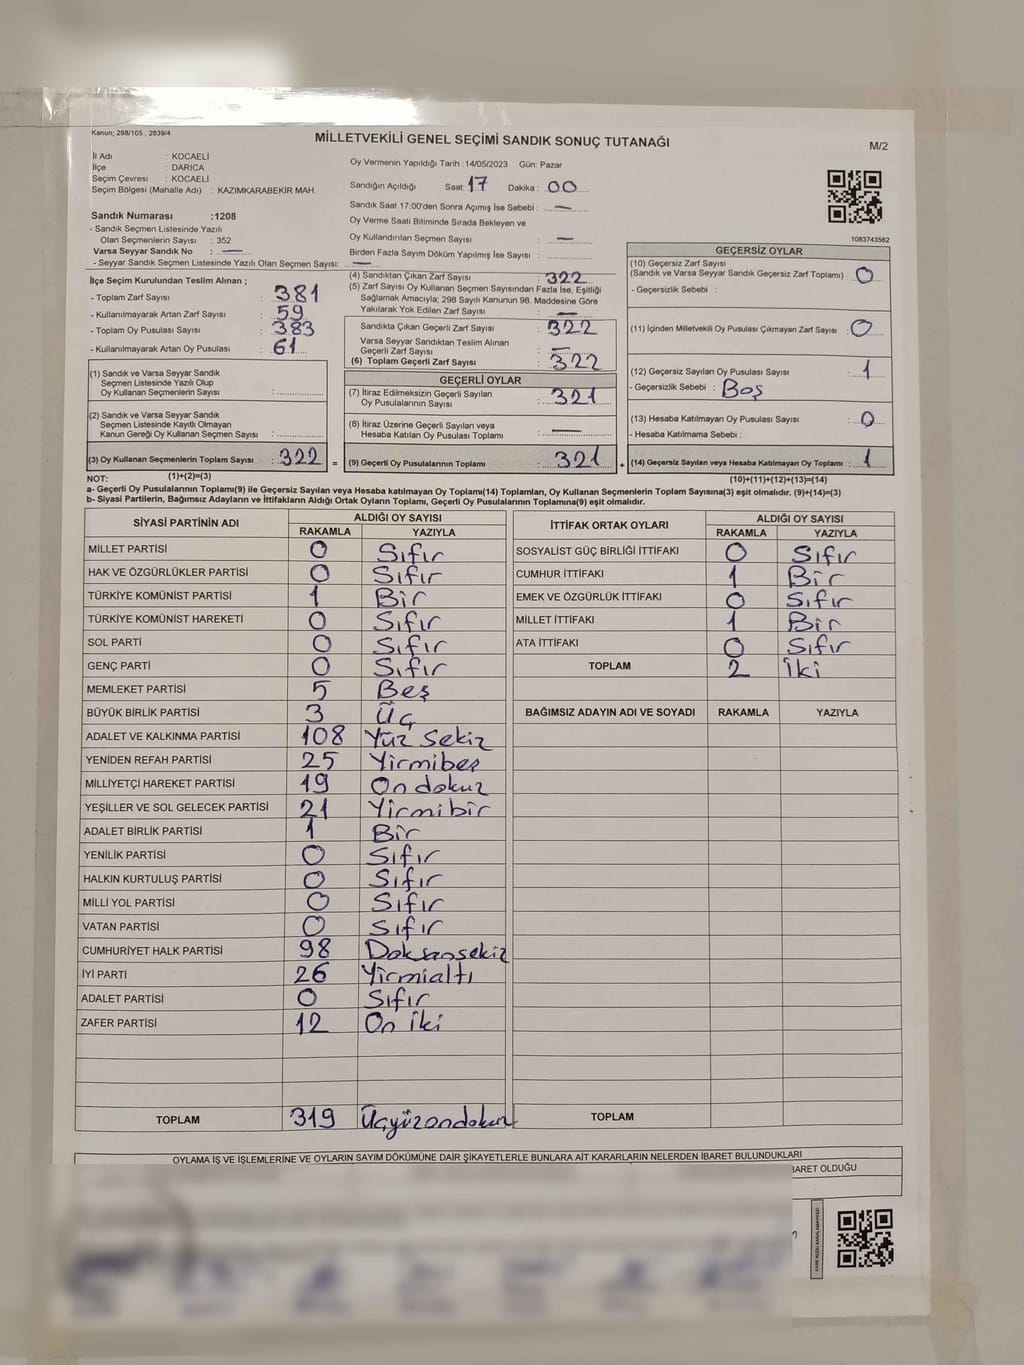 Kanun; 298/105 , 2839/4
MİLLETVEKİLİ GENEL SEÇİMİ SANDIK SONUÇ TUTANAĞI
M/2
İl Adı : KOCAELİ
İlçe : DARICA
Seçim Çevresi : KOCAELİ
Seçim Bölgesi (Mahalle Adı) : KAZIMKARABEKİR MAH.
Sandık Numarası :1208
- Sandık Seçmen Listesinde Yazılı
Olan Seçmenlerin Sayısı : 352
Varsa Seyyar Sandık No : —
- Seyyar Sandık Seçmen Listesinde Yazılı Olan Seçmen Sayısı: —
Oy Vermenin Yapıldığı Tarih :14/05/2023 Gün: Pazar
Sandığın Açıldığı Saat: 17 Dakika : 00
Sandık Saat 17:00'den Sonra Açılmış İse Sebebi : —
Oy Verme Saati Bitiminde Sırada Bekleyen ve
Oy Kullandırılan Seçmen Sayısı : —
Birden Fazla Sayım Döküm Yapılmış İse Sayısı :
1083743562
İlçe Seçim Kurulundan Teslim Alınan ;
- Toplam Zarf Sayısı : 381
- Kullanılmayarak Artan Zarf Sayısı : 59
- Toplam Oy Pusulası Sayısı : 383
- Kullanılmayarak Artan Oy Pusulası : 61
(1) Sandık ve Varsa Seyyar Sandık
Seçmen Listesinde Yazılı Olup
Oy Kullanan Seçmenlerin Sayısı :
(2) Sandık ve Varsa Seyyar Sandık
Seçmen Listesinde Kayıtlı Olmayan
Kanun Gereği Oy Kullanan Seçmen Sayısı :
(3) Oy Kullanan Seçmenlerin Toplam Sayısı : 322
(1)+(2)=(3)
(4) Sandıktan Çıkan Zarf Sayısı : 322
(5) Zarf Sayısı Oy Kullanan Seçmen Sayısından Fazla İse, Eşitliği
Sağlamak Amacıyla, 298 Sayılı Kanunun 98. Maddesine Göre
Yakılarak Yok Edilen Zarf Sayısı : —
Sandıkta Çıkan Geçerli Zarf Sayısı : 322
Varsa Seyyar Sandıktan Teslim Alınan
Geçerli Zarf Sayısı : —
(6) Toplam Geçerli Zarf Sayısı : 322
GEÇERLİ OYLAR
(7) İtiraz Edilmeksizin Geçerli Sayılan
Oy Pusulalarının Sayısı : 321
(8) İtiraz Üzerine Geçerli Sayılan veya
Hesaba Katılan Oy Pusulası Toplamı : —
= (9) Geçerli Oy Pusulalarının Toplamı : 321
GEÇERSİZ OYLAR
(10) Geçersiz Zarf Sayısı
(Sandık ve Varsa Seyyar Sandık Geçersiz Zarf Toplamı) : 0
- Geçersizlik Sebebi :
(11) İçinden Milletvekili Oy Pusulası Çıkmayan Zarf Sayısı : 0
(12) Geçersiz Sayılan Oy Pusulası Sayısı : 1
- Geçersizlik Sebebi : Boş
(13) Hesaba Katılmayan Oy Pusulası Sayısı : 0
- Hesaba Katılmama Sebebi :
+ (14) Geçersiz Sayılan veya Hesaba Katılmayan Oy Toplamı : 1
(10)+(11)+(12)+(13)=(14)
NOT:
a- Geçerli Oy Pusulalarının Toplamı(9) ile Geçersiz Sayılan veya Hesaba katılmayan Oy Toplamı(14) Toplamları, Oy Kullanan Seçmenlerin Toplam Sayısına(3) eşit olmalıdır. (9)+(14)=(3)
b- Siyasi Partilerin, Bağımsız Adayların ve İttifakların Aldığı Ortak Oyların Toplamı, Geçerli Oy Pusulalarının Toplamına(9) eşit olmalıdır.
SİYASİ PARTİNİN ADI ALDIĞI OY SAYISI
RAKAMLA YAZIYLA
MİLLET PARTİSİ 0 Sıfır
HAK VE ÖZGÜRLÜKLER PARTİSİ 0 Sıfır
TÜRKİYE KOMÜNİST PARTİSİ 1 Bir
TÜRKİYE KOMÜNİST HAREKETİ 0 Sıfır
SOL PARTİ 0 Sıfır
GENÇ PARTİ 0 Sıfır
MEMLEKET PARTİSİ 5 Beş
BÜYÜK BİRLİK PARTİSİ 3 Üç
ADALET VE KALKINMA PARTİSİ 108 Yüz Sekiz
YENİDEN REFAH PARTİSİ 25 Yirmibeş
MİLLİYETÇİ HAREKET PARTİSİ 19 On dokuz
YEŞİLLER VE SOL GELECEK PARTİSİ 21 Yirmibir
ADALET BİRLİK PARTİSİ 1 Bir
YENİLİK PARTİSİ 0 Sıfır
HALKIN KURTULUŞ PARTİSİ 0 Sıfır
MİLLİ YOL PARTİSİ 0 Sıfır
VATAN PARTİSİ 0 Sıfır
CUMHURİYET HALK PARTİSİ 98 Doksansekiz
İYİ PARTİ 26 Yirmialtı
ADALET PARTİSİ 0 Sıfır
ZAFER PARTİSİ 12 On iki
TOPLAM 319 Üçyüzondokuz
İTTİFAK ORTAK OYLARI ALDIĞI OY SAYISI
RAKAMLA YAZIYLA
SOSYALİST GÜÇ BİRLİĞİ İTTİFAKI 0 Sıfır
CUMHUR İTTİFAKI 1 Bir
EMEK VE ÖZGÜRLÜK İTTİFAKI 0 Sıfır
MİLLET İTTİFAKI 1 Bir
ATA İTTİFAKI 0 Sıfır
TOPLAM 2 İki
BAĞIMSIZ ADAYIN ADI VE SOYADI RAKAMLA YAZIYLA
TOPLAM
OYLAMA İŞ VE İŞLEMLERİNE VE OYLARIN SAYIM DÖKÜMÜNE DAİR ŞİKAYETLERLE BUNLARA AİT KARARLARIN NELERDEN İBARET BULUNDUKLARI
BARET OLDUĞU